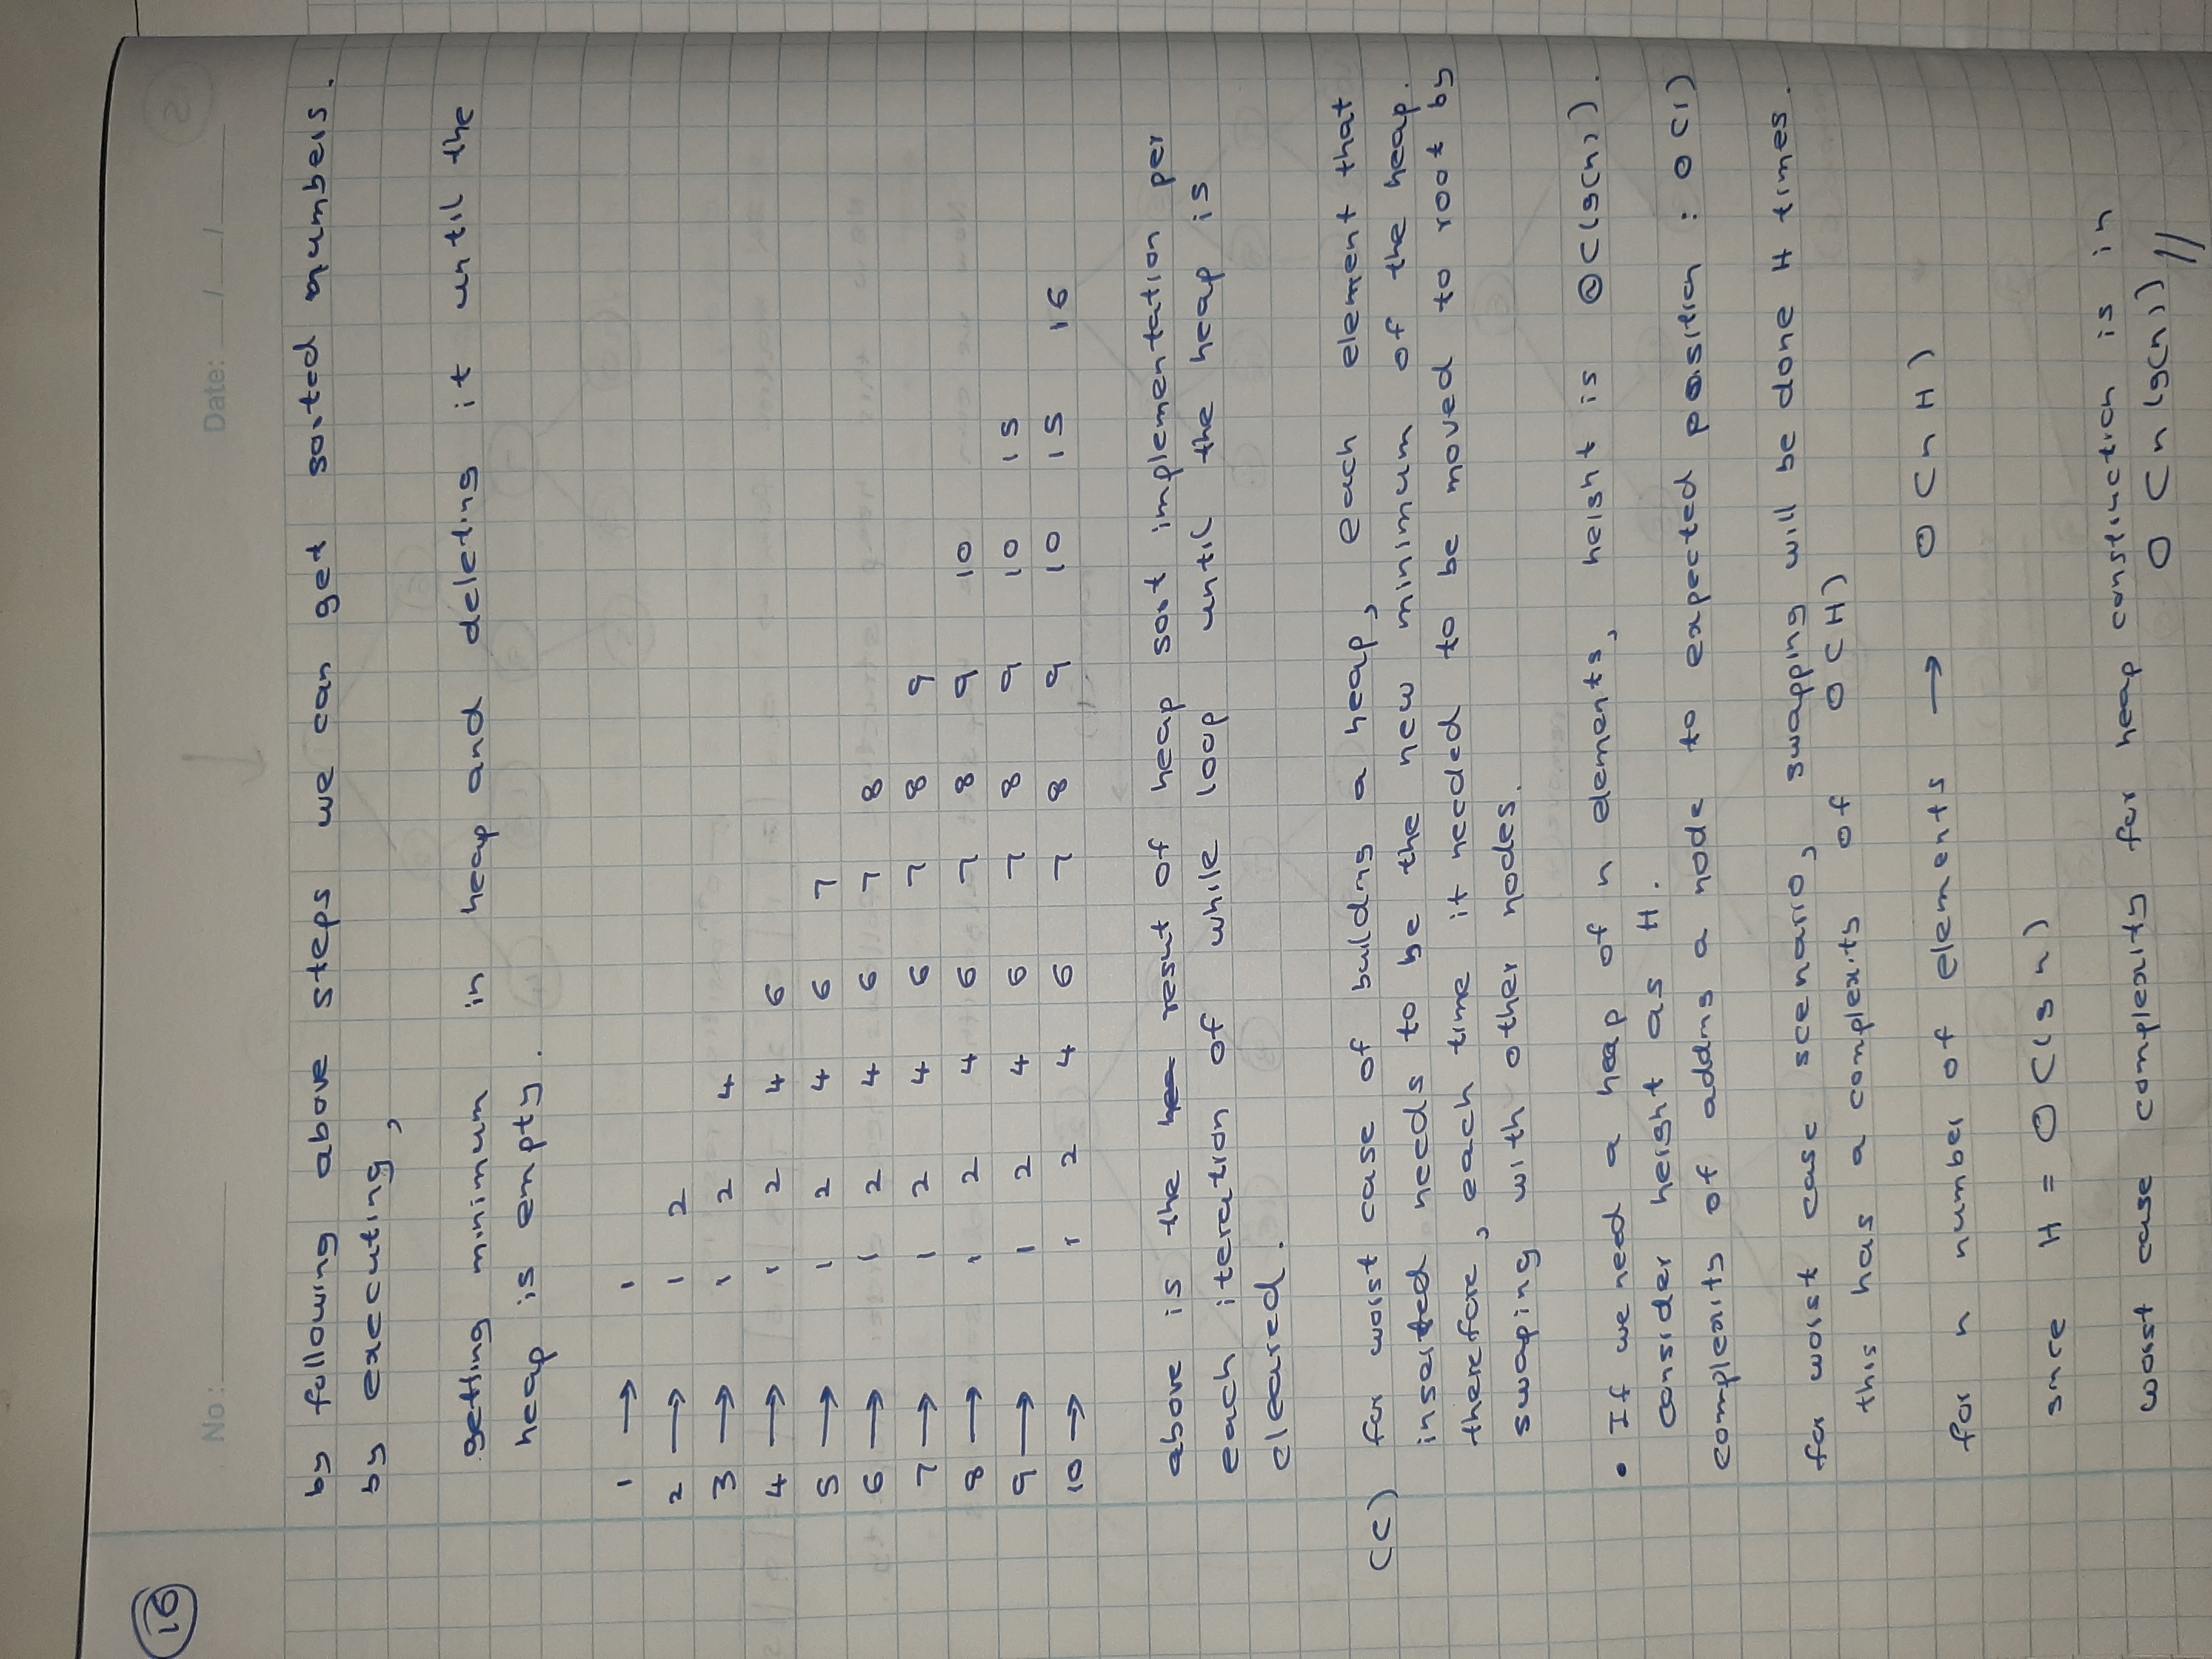 16
No :
Date: / /
by following above steps we can get sorted numbers.
by executing,
getting minimum in heap and deleting it until the
heap is empty.
1 → 1
2 → 1 2
3 → 1 2 4
4 → 1 2 4 6
5 → 1 2 4 6 7
6 → 1 2 4 6 7 8
7 → 1 2 4 6 7 8 9
8 → 1 2 4 6 7 8 9 10
9 → 1 2 4 6 7 8 9 10 15
10 → 1 2 4 6 7 8 9 10 15 16
above is the resut of heap sort implementation per
each iteration of while loop until the heap is
cleared.
(c) for worst case of building a heap, each element that
inserted needs to be the new minimum of the heap.
therefore, each time it needed to be moved to root by
swaping with other nodes.
• If we need a heap of n elements, height is O(lg(n)).
consider height as H.
complexity of adding a node to expected position : O(1)
for worst case scenario, swapping will be done H times.
this has a complexity of O(H)
for n number of elements → O(nH)
since H = O(lg n)
worst case complexity for heap construction is in
O(n lg(n)) //